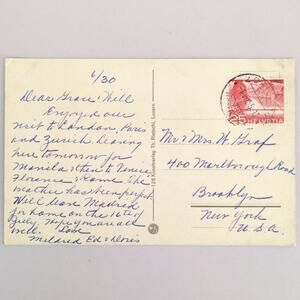 6/30
Dear Grace & Will
Enjoyed our
visit to London, Paris
and Zurich. Leaving
here tomorrow for
then to Venice
Florence & Rome. The
weather has been perfect.
Will leave Madrid
for home on the 16th of
July. Hope you are all
well. Love
Mildred Ed & Doris
HELVETIA
25
Mr & Mrs. W. Graf
400 Marlborough Road
Brooklyn
New York
U.S.A.